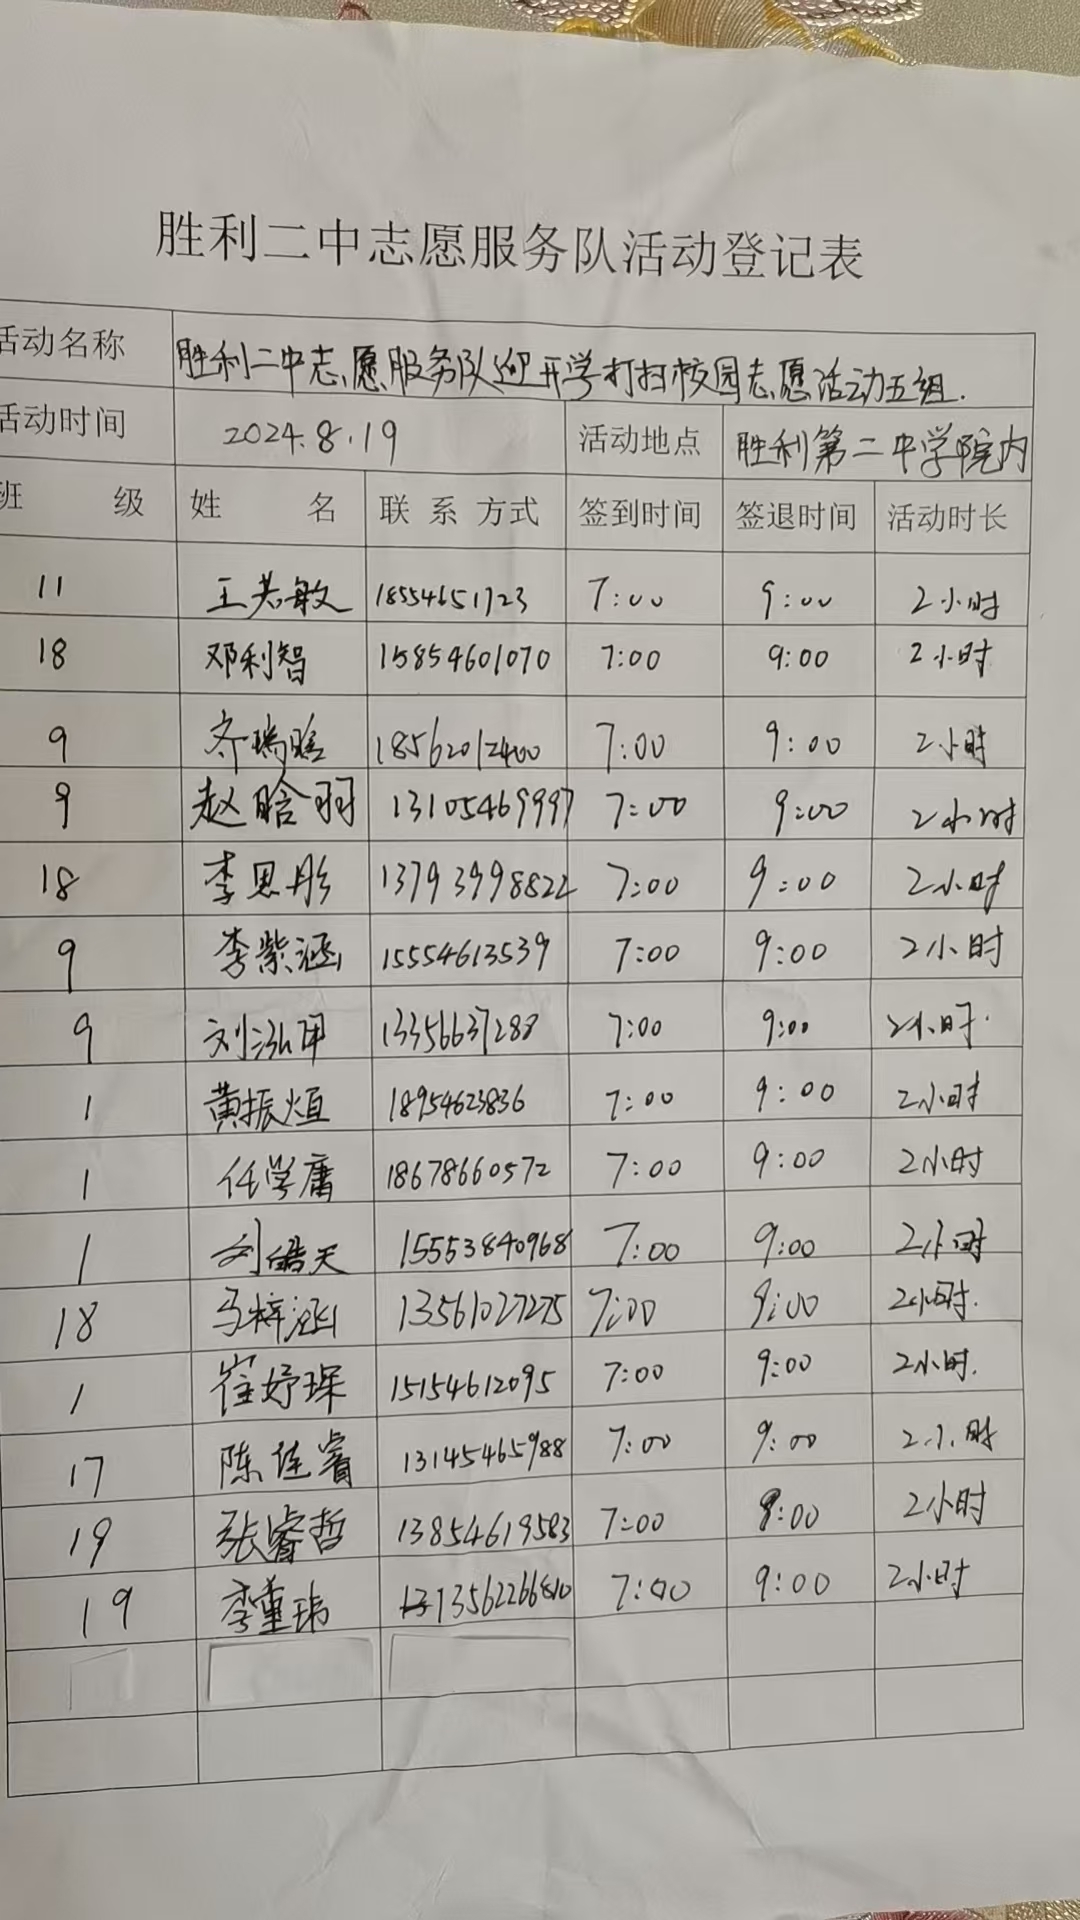 胜利二中志愿服务队活动登记表
活动名称 胜利二中志愿服务队迎开学打扫校园志愿活动五组.
活动时间 2024.8.19 活动地点 胜利第二中学院内
班 级 姓 名 联 系 方式 签到时间 签退时间 活动时长
11 王若敏 18554651723 7:00 9:00 2小时
18 邓利智 15854601070 7:00 9:00 2小时
9 齐瑞晗 18562012400 7:00 9:00 2小时
9 赵晗羽 13105469997 7:00 9:00 2小时
18 李思彤 13793998822 7:00 9:00 2小时
9 李紫涵 15554613539 7:00 9:00 2小时
9 刘泓 13356637288 7:00 9:00 2小时.
1 黄振烜 18954623836 7:00 9:00 2小时
1 任学庸 18678660572 7:00 9:00 2小时
1 刘皓天 15553840968 7:00 9:00 2小时
18 马梓涵 13561027275 7:00 9:00 2小时.
1 崔妤琛 15154612095 7:00 9:00 2小时.
17 陈佳睿 13145465988 7:00 9:00 2小时
19 张睿哲 13854619583 7:00 9:00 2小时
19 李董玮 7:00 9:00 2小时